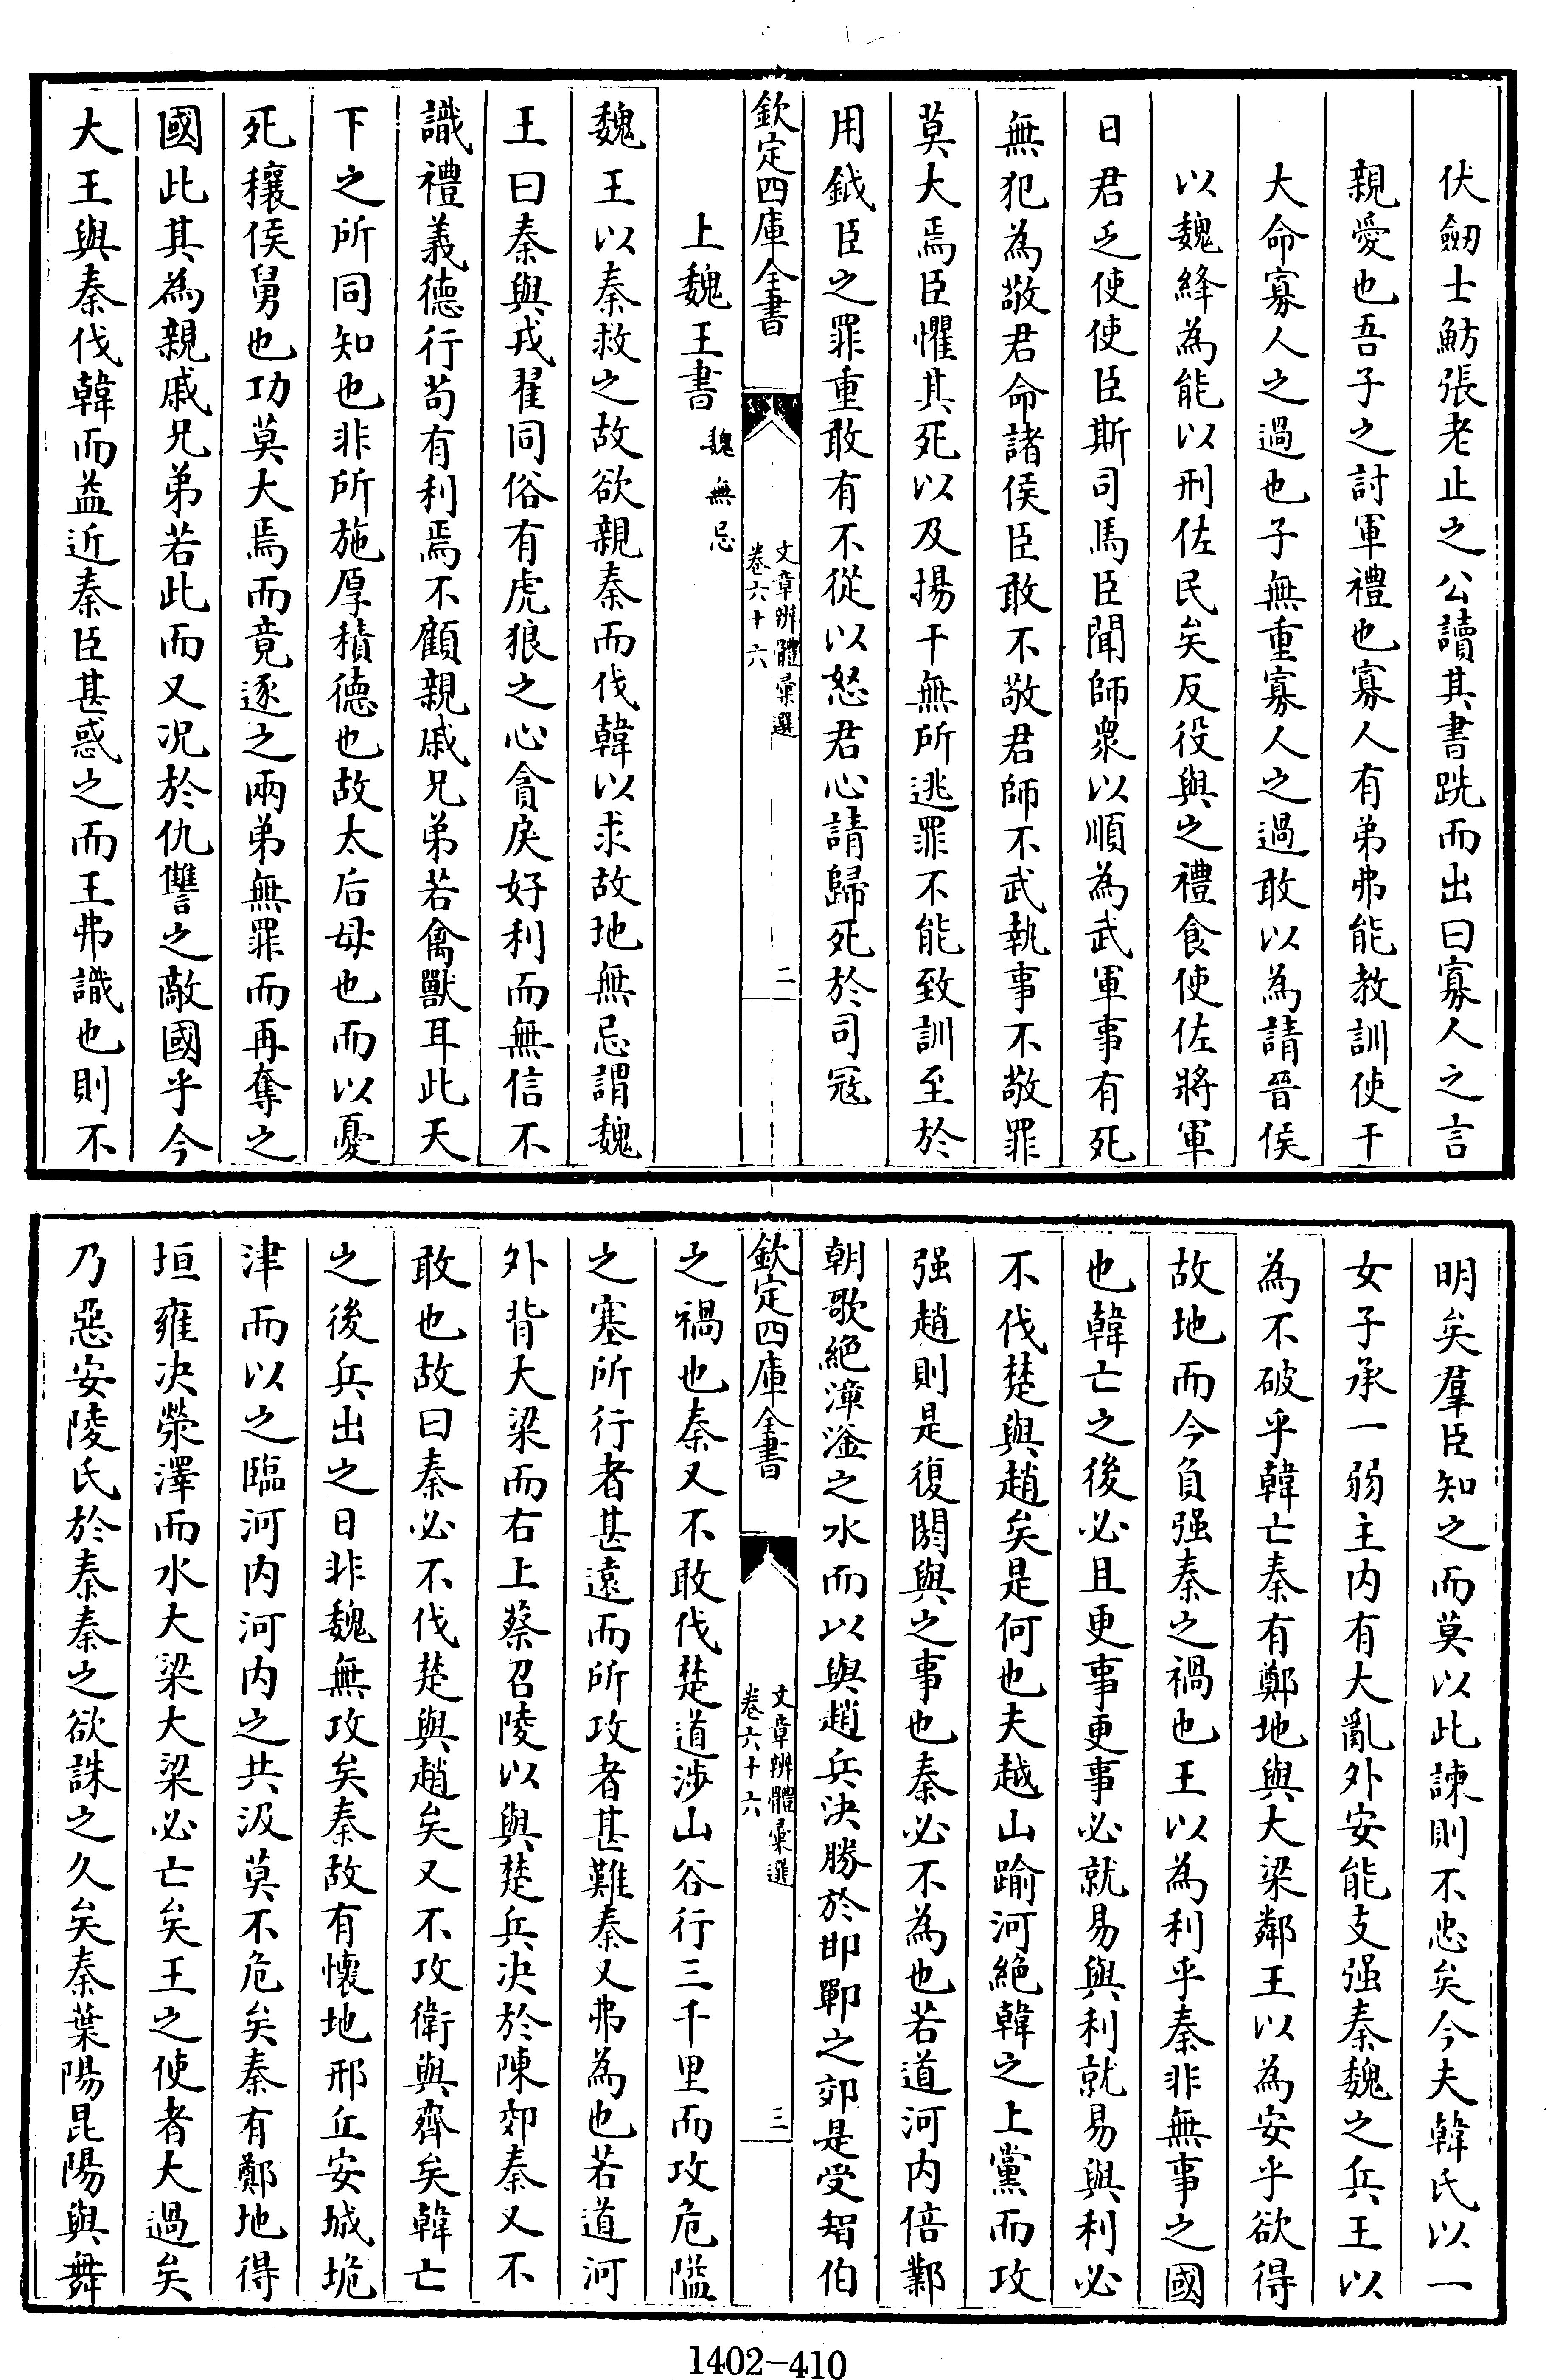 伏劒士魴張老止之公讀其書跣而出曰寡人之言
親愛也吾子之討軍禮也寡人有弟弗能教訓使干
大命寡人之過也子無重寡人之過敢以為請晉侯
以魏絳為能以刑佐民矣反役與之禮食使佐將軍
日君乏使使臣斯司馬臣聞師衆以順為武軍事有死
無犯為敬君命諸侯臣敢不敬君師不武執事不敬罪
莫大焉臣懼其死以及揚干無所逃罪不能致訓至於
用鉞臣之罪重敢有不從以怒君心請歸死於司冦
欽定四庫全書
文章辨體彙選
卷六十六
二
上魏王書 魏無忌
魏王以秦救之故欲親秦而伐韓以求故地無忌謂魏
王曰秦與戎翟同俗有虎狼之心貪戾好利而無信不
識禮義德行苟有利焉不顧親戚兄弟若禽獸耳此天
下之所同知也非所施厚積德也故太后母也而以憂
死穰侯舅也功莫大焉而竟逐之兩弟無罪而再奪之
國此其為親戚兄弟若此而又况於仇讐之敵國乎今
大王與秦伐韓而益近秦臣甚惑之而王弗識也則不
明矣羣臣知之而莫以此諫則不忠矣今夫韓氏以一
女子承一弱主内有大亂外安能支强秦魏之兵王以
為不破乎韓亡秦有鄭地與大梁鄰王以為安乎欲得
故地而今負强秦之禍也王以為利乎秦非無事之國
也韓亡之後必且更事更事必就易與利就易與利必
不伐楚與趙矣是何也夫越山踰河絶韓之上黨而攻
强趙則是復閼與之事也秦必不為也若道河内倍鄴
朝歌絶漳滏之水而以與趙兵決勝於邯鄲之郊是受智伯
欽定四庫全書
文章辨體彙選
卷六十六
三
之禍也秦又不敢伐楚道涉山谷行三千里而攻危隘
之塞所行者甚遠而所攻者甚難秦又弗為也若道河
外背大梁而右上蔡召陵以與楚兵決於陳郊秦又不
敢也故曰秦必不伐楚與趙矣又不攻衛與齊矣韓亡
之後兵出之日非魏無攻矣秦故有懷地邢丘安城垝
津而以之臨河内河内之共汲莫不危矣秦有鄭地得
垣雍决滎澤而水大梁大梁必亡矣王之使者大過矣
乃惡安陵氏於秦秦之欲誅之久矣秦葉陽昆陽與舞
1402-410